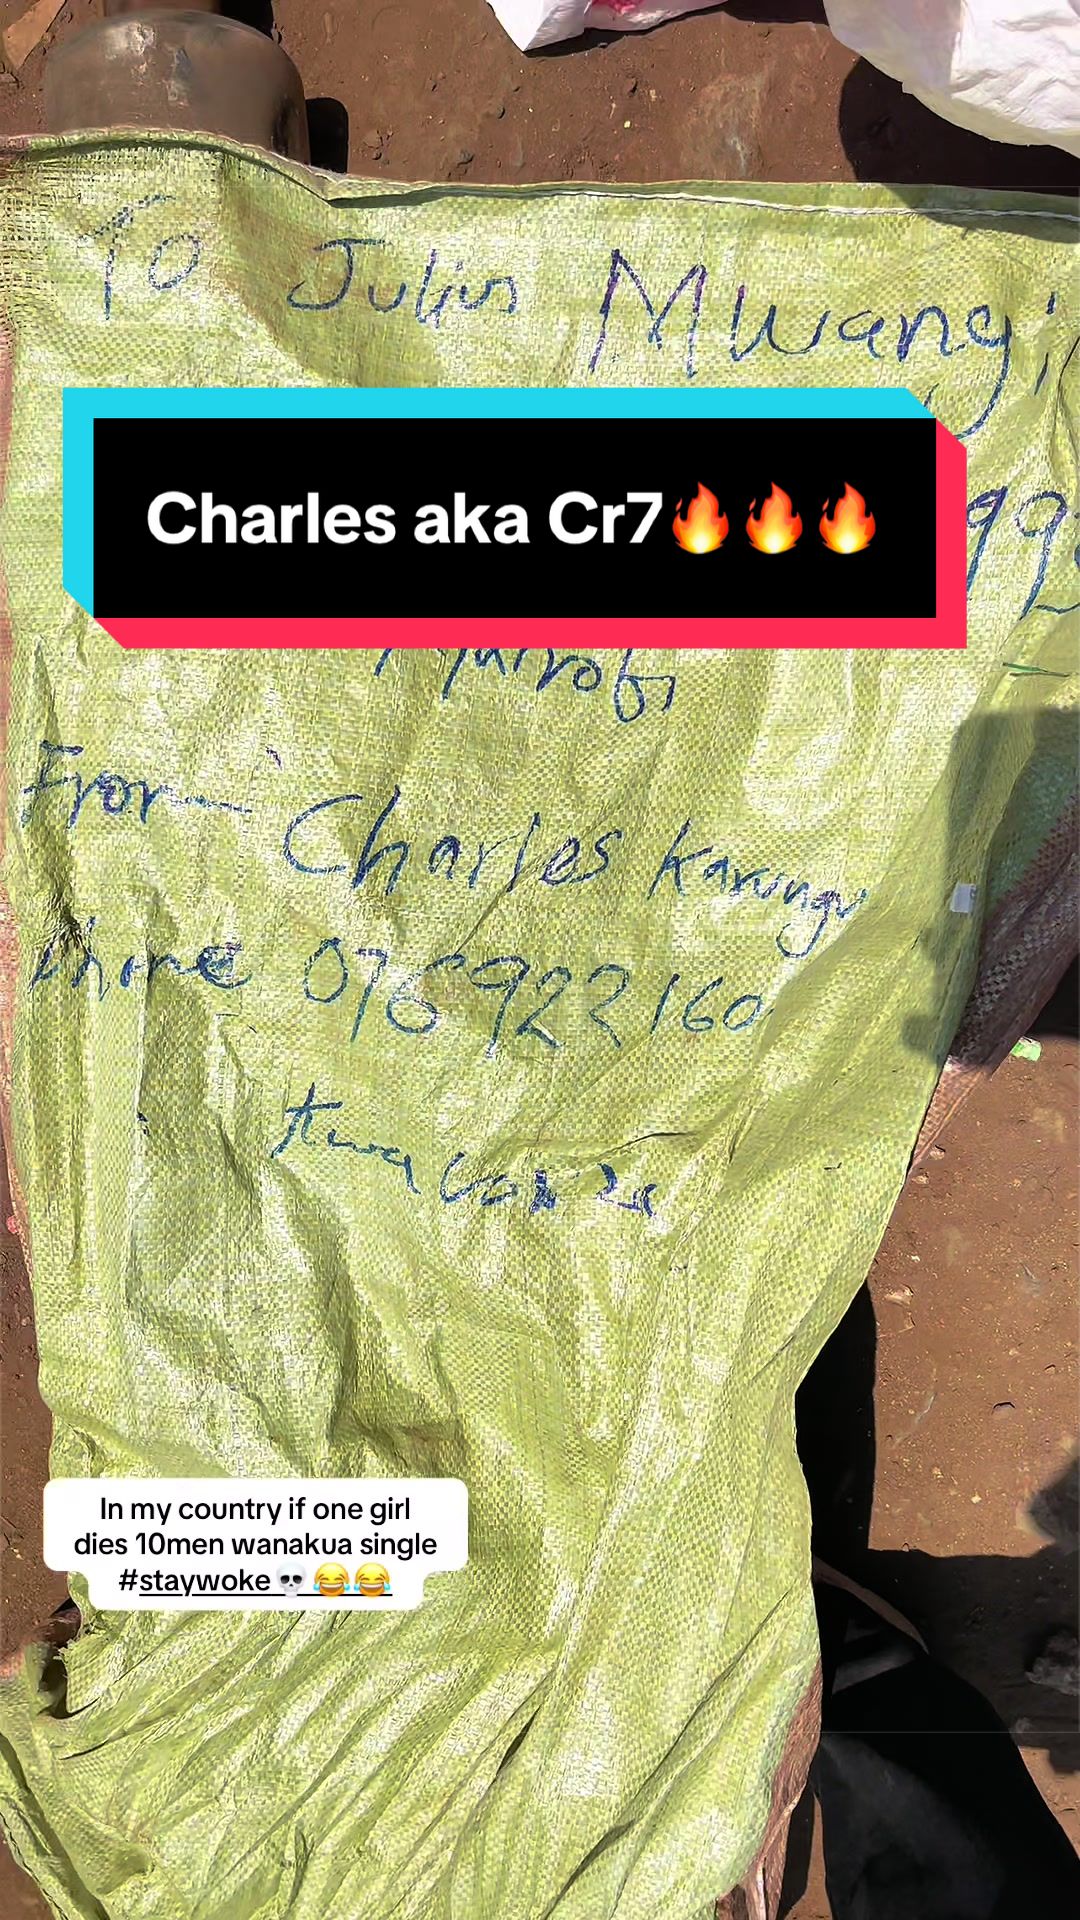 To Julius Mwangi
Charles aka Cr7🔥🔥🔥
From Charles Karungu
Phone 0769223160
In my country if one girl
dies 10men wanakua single
#staywoke💀😂😂